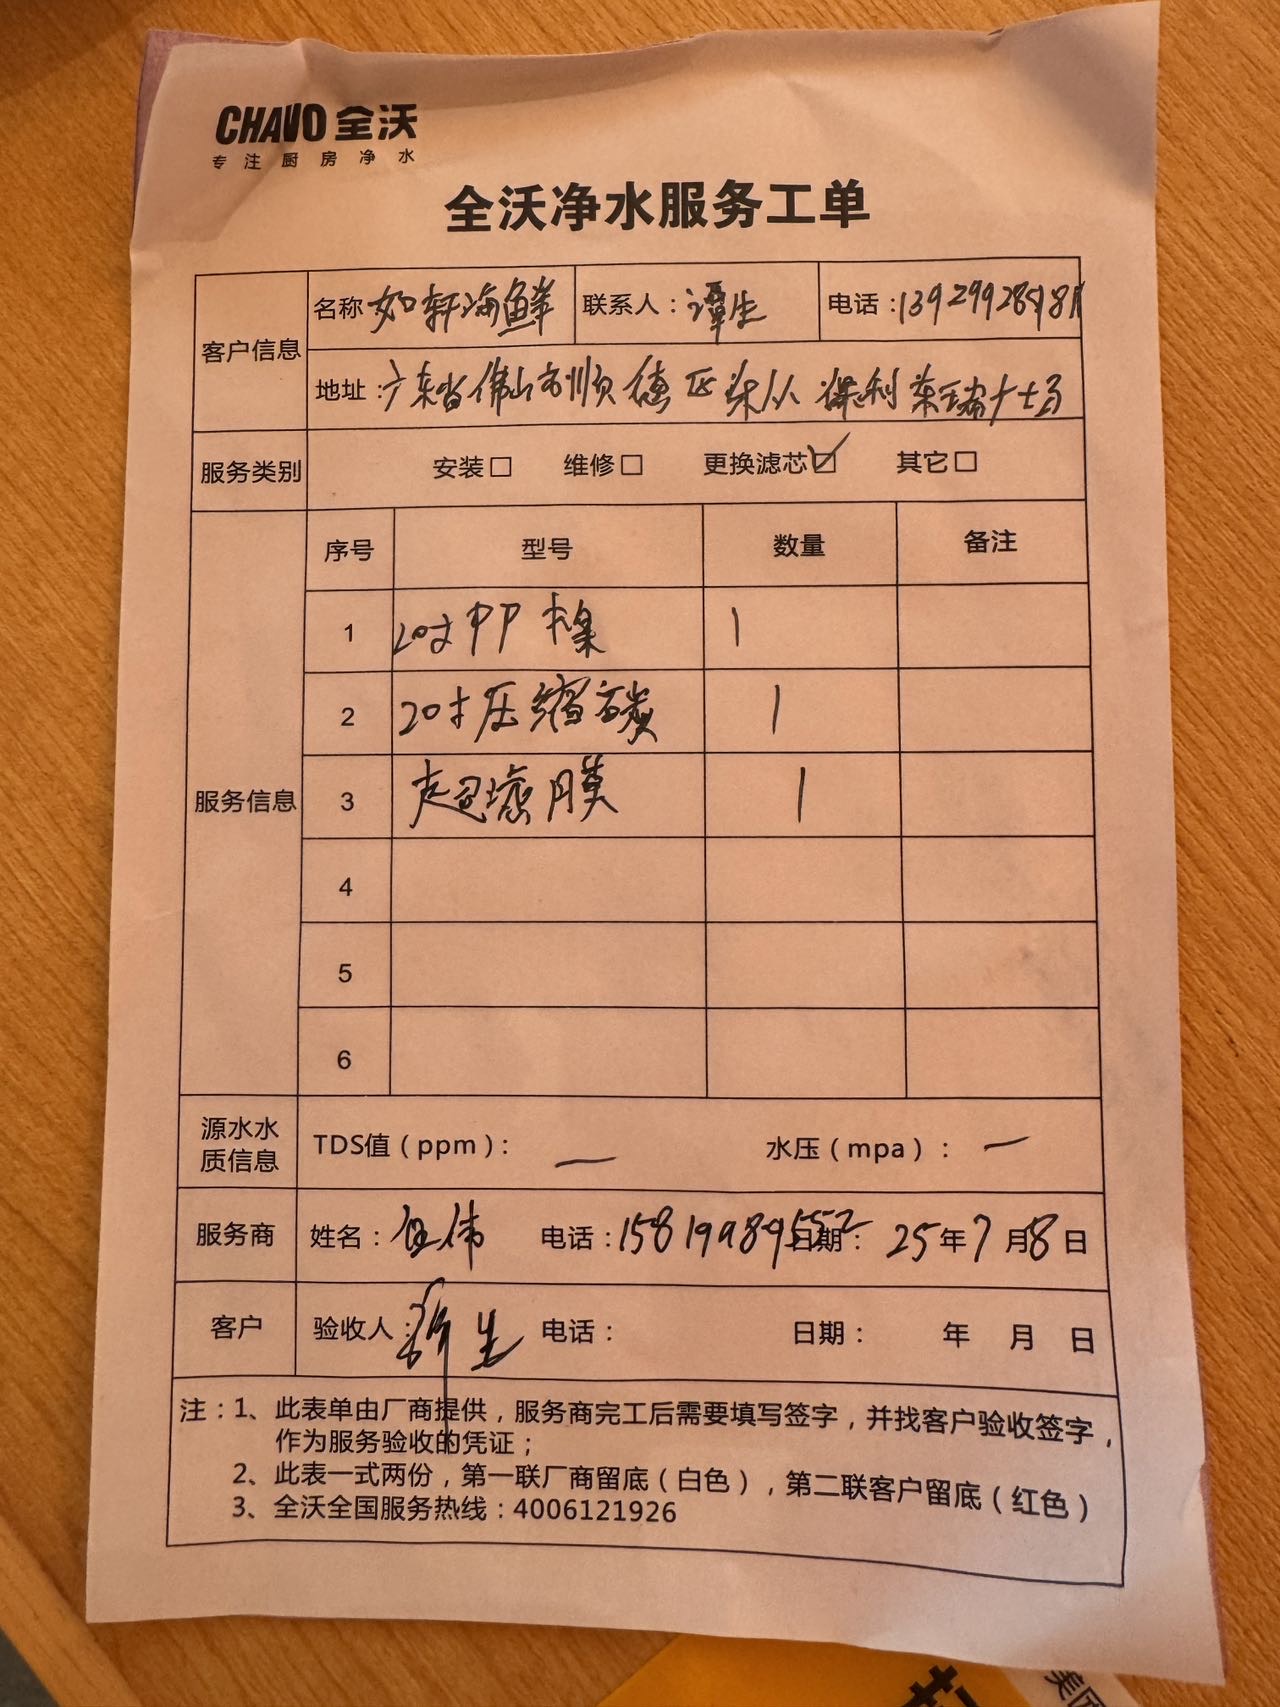 CHAVO 全沃
专注厨房净水
全沃净水服务工单
客户信息 名称 如轩海鲜 联系人：谭生 电话：
地址：广东省佛山市顺德区 保利东瑞
服务类别 安装□ 维修□ 更换滤芯☑ 其它□
服务信息 序号 型号 数量 备注
1 20寸PP棉 1
2 20寸压缩碳 1
3 超滤膜 1
4
5
6
源水水质信息 TDS值（ppm）： — 水压（mpa）： —
服务商 姓名：伍伟 电话：15819989552 日期： 25年7月8日
客户 验收人： 生 电话： 日期： 年 月 日
注：1、此表单由厂商提供，服务商完工后需要填写签字，并找客户验收签字，
作为服务验收的凭证；
2、此表一式两份，第一联厂商留底（白色），第二联客户留底（红色）
3、全沃全国服务热线：4006121926
美团